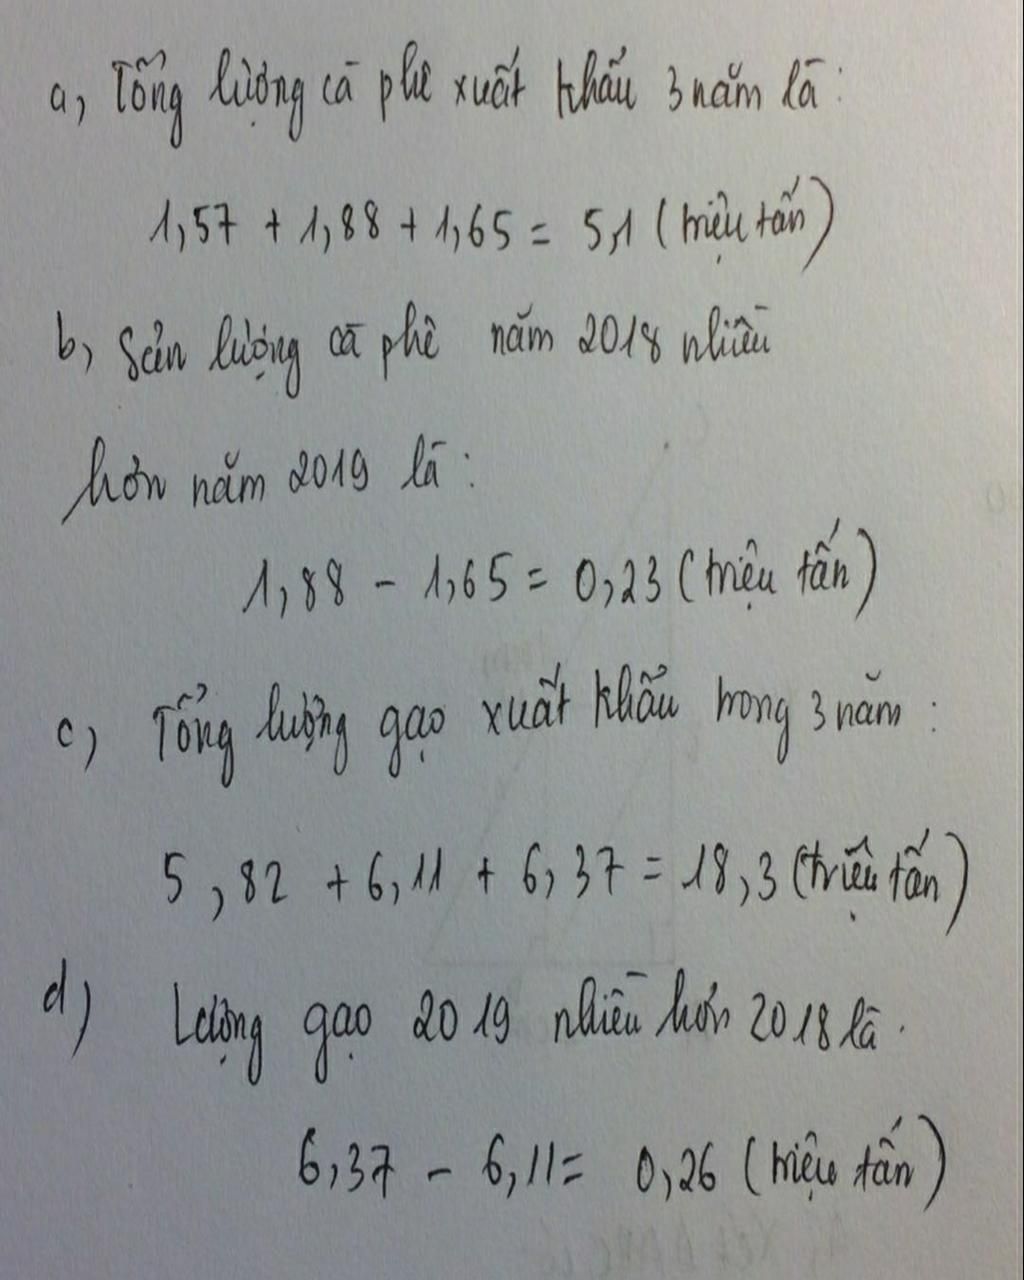 a, Tổng lượng cà phê xuất khẩu 3 năm là :
1,57 + 1,88 + 1,65 = 5,1 ( triệu tấn )
b, Sản lượng cà phê năm 2018 nhiều
hơn năm 2019 là :
1,88 - 1,65 = 0,23 ( triệu tấn )
c) Tổng lượng gạo xuất khẩu trong 3 năm :
5,82 + 6,11 + 6,37 = 18,3 ( triệu tấn )
d) Lượng gạo 2019 nhiều hơn 2018 là .
6,37 - 6,11 = 0,26 ( triệu tấn )